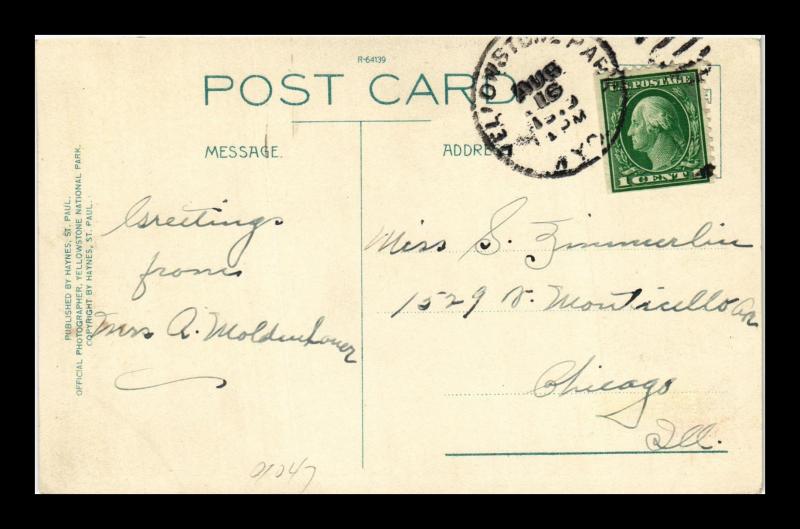 R-64139
POST CARD
MESSAGE.
ADDRE
YELLOWSTONE PARK
WYO.
AUG
16
PM
U.S. POSTAGE
1 CENT
PUBLISHED BY HAYNES, ST. PAUL.
OFFICIAL PHOTOGRAPHER, YELLOWSTONE NATIONAL PARK.
COPYRIGHT BY HAYNES, ST. PAUL.
Greetings
from
Mrs A. Moldenhauer
Miss S. Zimmerlin
1529 N. Monticello Av
Chicago
Ill.